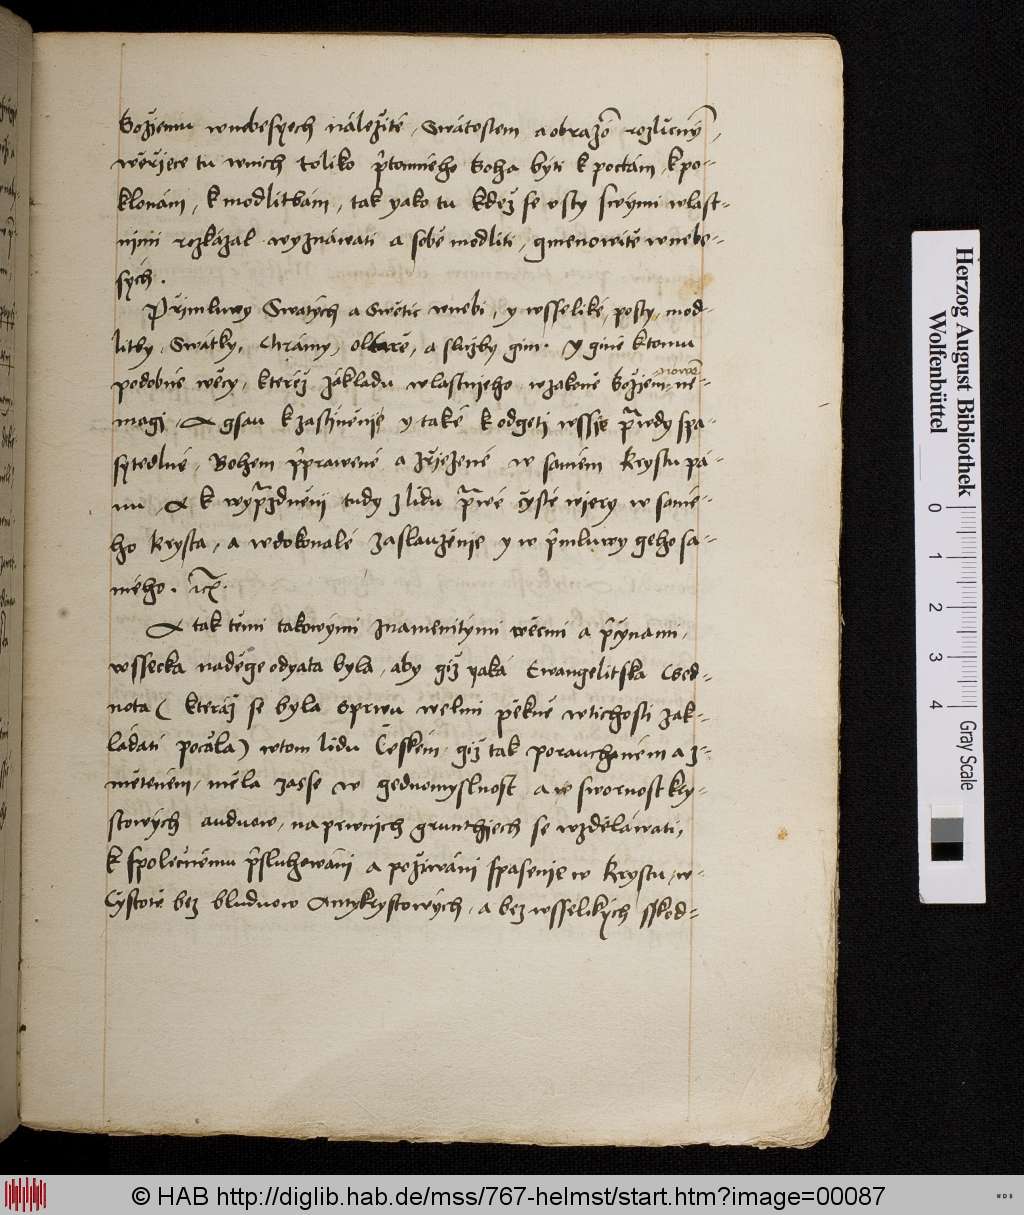 Božiemu wnebesyech náležité, Swátostem a obrazō rozličnȳm,
wěřijece tu wnich toliko přitomného Boha býti k poctám, k po-
klonám, k modlitbám, tak yako tu kdež se vsty swými wlast-
nimi rozkázal wyznáwati a sobě modliti, gmenowitě w nebe-
sých.
Přimluwy Swatých a Swětic w nebi, y wsseliké posty, mod-
litby, Swátky, Chrámy, oltaré, a služby gim. Y giné k tomu
podobné wěcy, kteréž základu wlastnieho w zákoně Božiem nowé ne-
magi, A gsau k zastiněnije y také k odgeti wssie prawdy spa-
sytedlné, Bohem připrawené a zřiezené w samém Krystu pá-
nu, A k wyprázdněni tudy z lidu prawé čysté wiery w samé-
ho Krysta, a w dokonalé zaslauženije y w přimluwy geho sa-
mého. etč.
A tak těmi takowými znamenitými wěcmi a přičynami,
wssecka naděge odyata byla, aby giž yaká Ewangelitska Ged-
nota (kteráž se byla sprwu welmi pěkně w tichosti zak-
ládati počala) w tom lidu Českém, giž tak porauchaném a z-
měteném, měla zasse w gednomyslnost a w swornost Kry-
stowých auduow, na prwnijch grunthjech se wzděláwati,
k společnému přisluhowáni a požiwáni spasenije w Krystu, w
Čystotě bez bluduow Antykrystowých, a bez wsselikých sskod-
Herzog August Bibliothek
Wolfenbüttel
0 1 2 3 4
Gray Scale
© HAB http://diglib.hab.de/mss/767-helmst/start.htm?image=00087
WDB